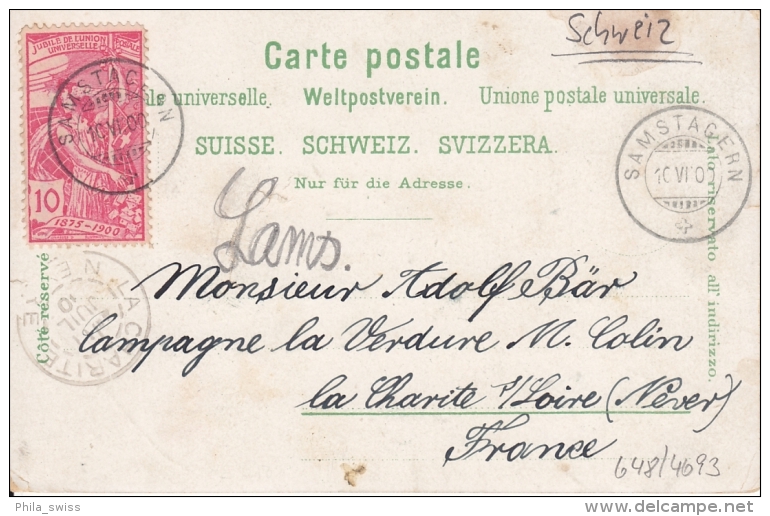 Schweiz
JUBILÉ DE L'UNION POSTALE
UNIVERSELLE
10
1875-1900
Carte postale
universelle. Weltpostverein. Unione postale universale.
SUISSE. SCHWEIZ. SVIZZERA.
Nur für die Adresse.
SAMSTAGERN
10 VI 00
SAMSTAGERN
10 VI 00
Côté réservé
Lato riservato all' indirizzo.
LA CHARITÉ
JUIL
Monsieur Adolf Bär
Campagne la Verdure M. Colin
la Charite s/Loire (Never)
France
648/4693
Phila_swiss
delcampe.net